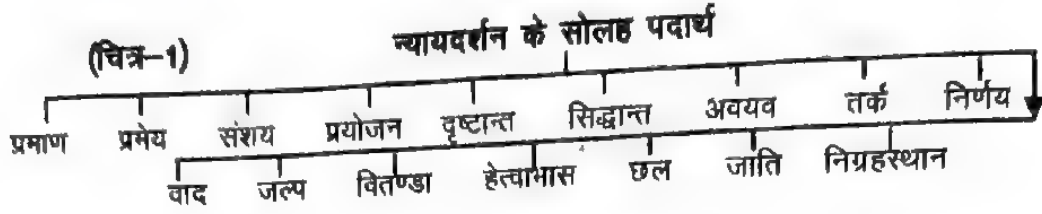 (चित्र-1) न्यायदर्शन के सोलह पदार्थ
प्रमाण प्रमेय संशय प्रयोजन दृष्टान्त सिद्धान्त अवयव तर्क निर्णय
वाद जल्प वितण्डा हेत्वाभास छल जाति निग्रहस्थान